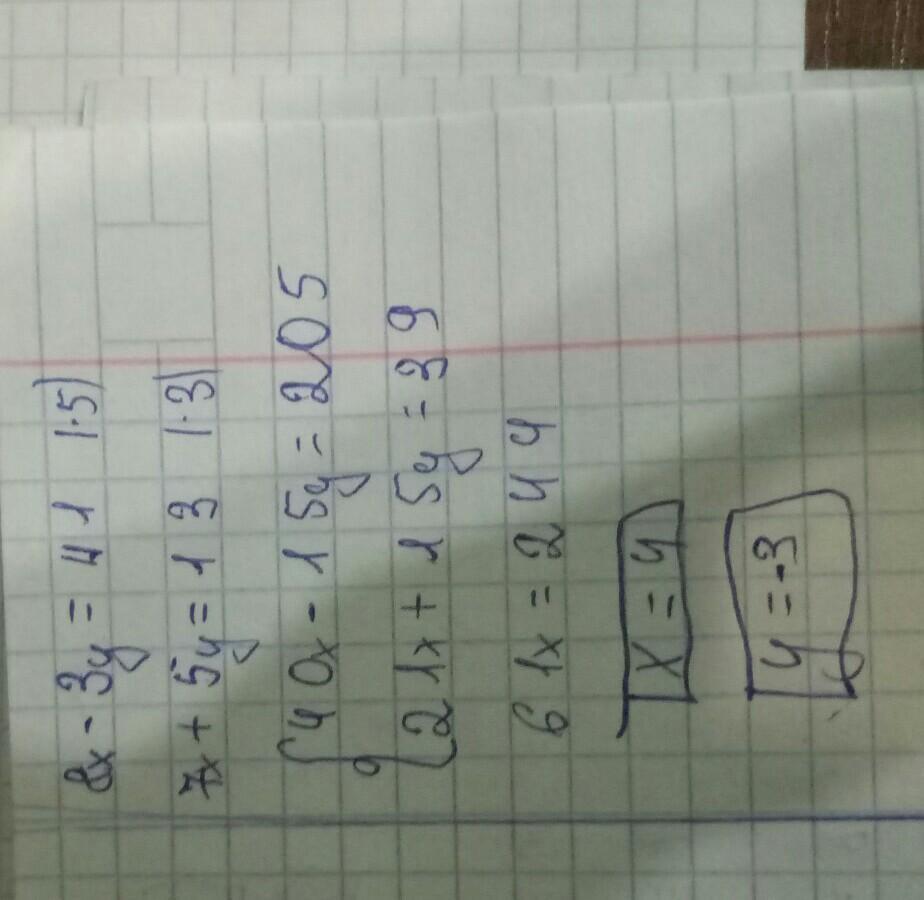 8x - 3y = 41 |·5|
7x + 5y = 13 |·3|
{40x - 15y = 205
{21x + 15y = 39
61x = 244
x = 4
y = -3